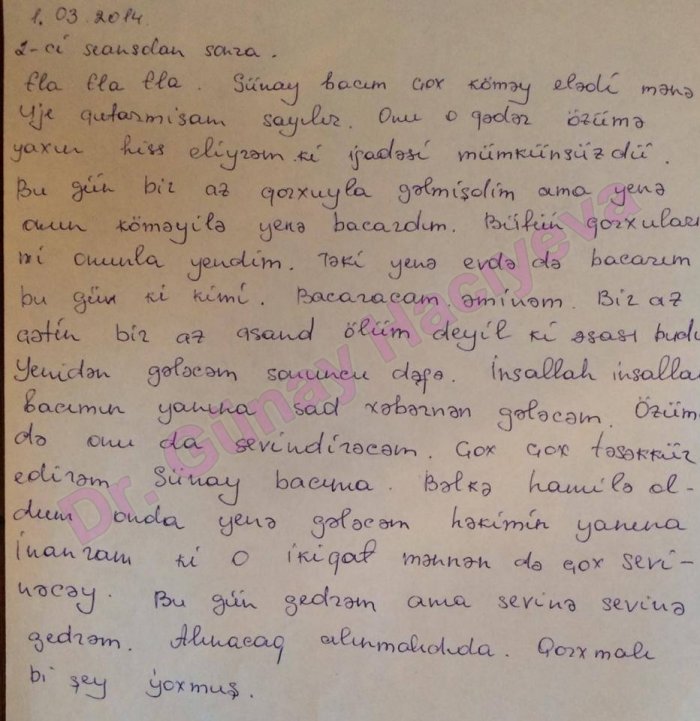 1.03.2014
2-ci seansdan sonra.
Əla əla əla. Günay bacım çox köməy elədi mənə
Yje qutarmisam sayılır. Onu o qədər özümə
yaxın hiss eliyrəm ki ifadəsi mümkünsüzdü.
Bu gün bir az qorxuyla gəlmişdim ama yenə
onun köməyilə yenə bacardım. Bütün qorxuları
mi onunla yendim. Təki yenə evdə də bacarım
bu gün ki kimi. Bacaracam əminəm. Bir az
çətin bir az asand ölüm deyil ki əsası budu
Yenidən gələcəm sonuncu dəfə. İnsallah insalla
bacımın yanına sad xəbərnən gələcəm. Özüm
də onu da sevindirəcəm. Çox çox təsəkkür
edirəm Günay bacıma. Bəlkə hamilə ol-
dum onda yenə gələcəm həkimin yanına
İnanram ki o ikiqat mənnən də çox sevi-
nəcəy. Bu gün gedrəm ama sevinə sevinə
gedrəm. Alınacaq alınmalıdıda. Qorxmalı
bi şey yoxmuş.
Dr. Günay Hacıyeva